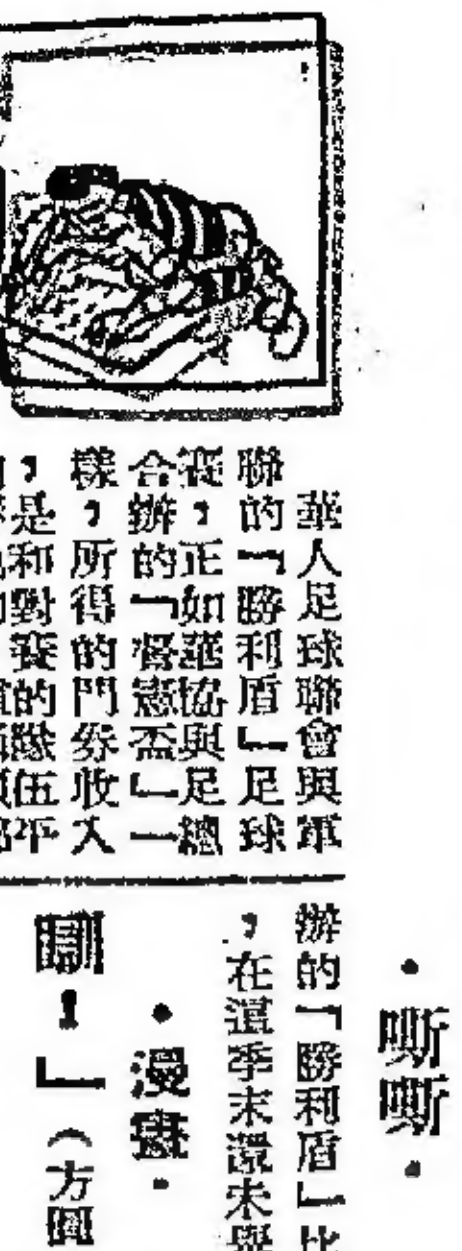 華人足球聯會與軍
聯的「勝利盾」足球
賽，正如華協與足總
合辦的「督憲盃」一
樣，所得的門券收入
，是和對賽的隊伍平
・嘶嘶・
辦的「勝利盾」比
，在這季末還未舉
・漫畫・
瞓！」（方圓